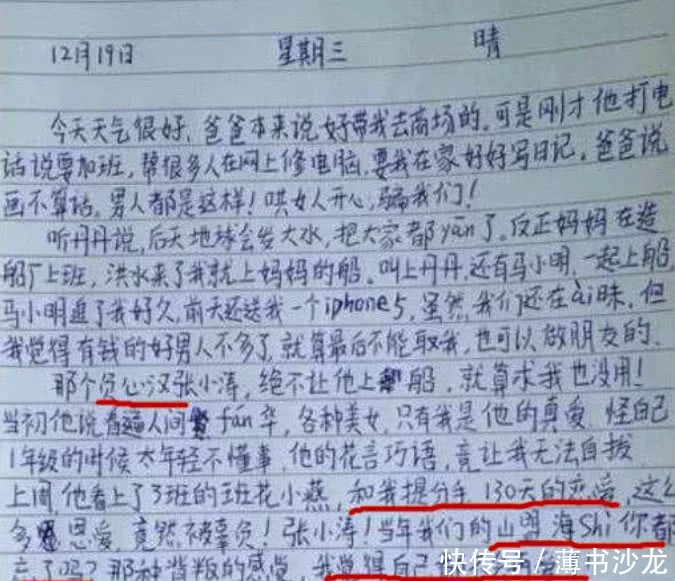 12月19日 星期三 晴
今天天气很好，爸爸本来说好带我去商场的。可是刚才他打电
话说要加班，帮很多人在网上修电脑，要我在家好好写日记。爸爸说
画不算话。男人都是这样！哄女人开心，骗我们！
听丹丹说，后天地球会发大水，把大家都yān了。反正妈妈在造
船厂上班，洪水来了我就上妈妈的船。叫上丹丹，还有马小明，一起上船，
马小明追了我好久，前天还送我一个iphone5，虽然，我们还在ài昧，但
我觉得有钱的好男人不多了，就算最后不能取我，也可以做朋友的。
那个负心汉张小涛，绝不让他上船，就算求我也没用！
当初他说看遍人间fán华，各种美女，只有我是他的真爱。怪自己
1年级的时候太年轻不懂事，他的花言巧语，竟让我无法自拔
上周，他看上了3班的班花小燕，和我提分手，130天的恋爱，这么
多恩爱，竟然被辜负！张小涛！当年我们的山明海Shi你都
忘了吗？那种背叛的感觉，我觉得自己
快传号／薄书沙龙